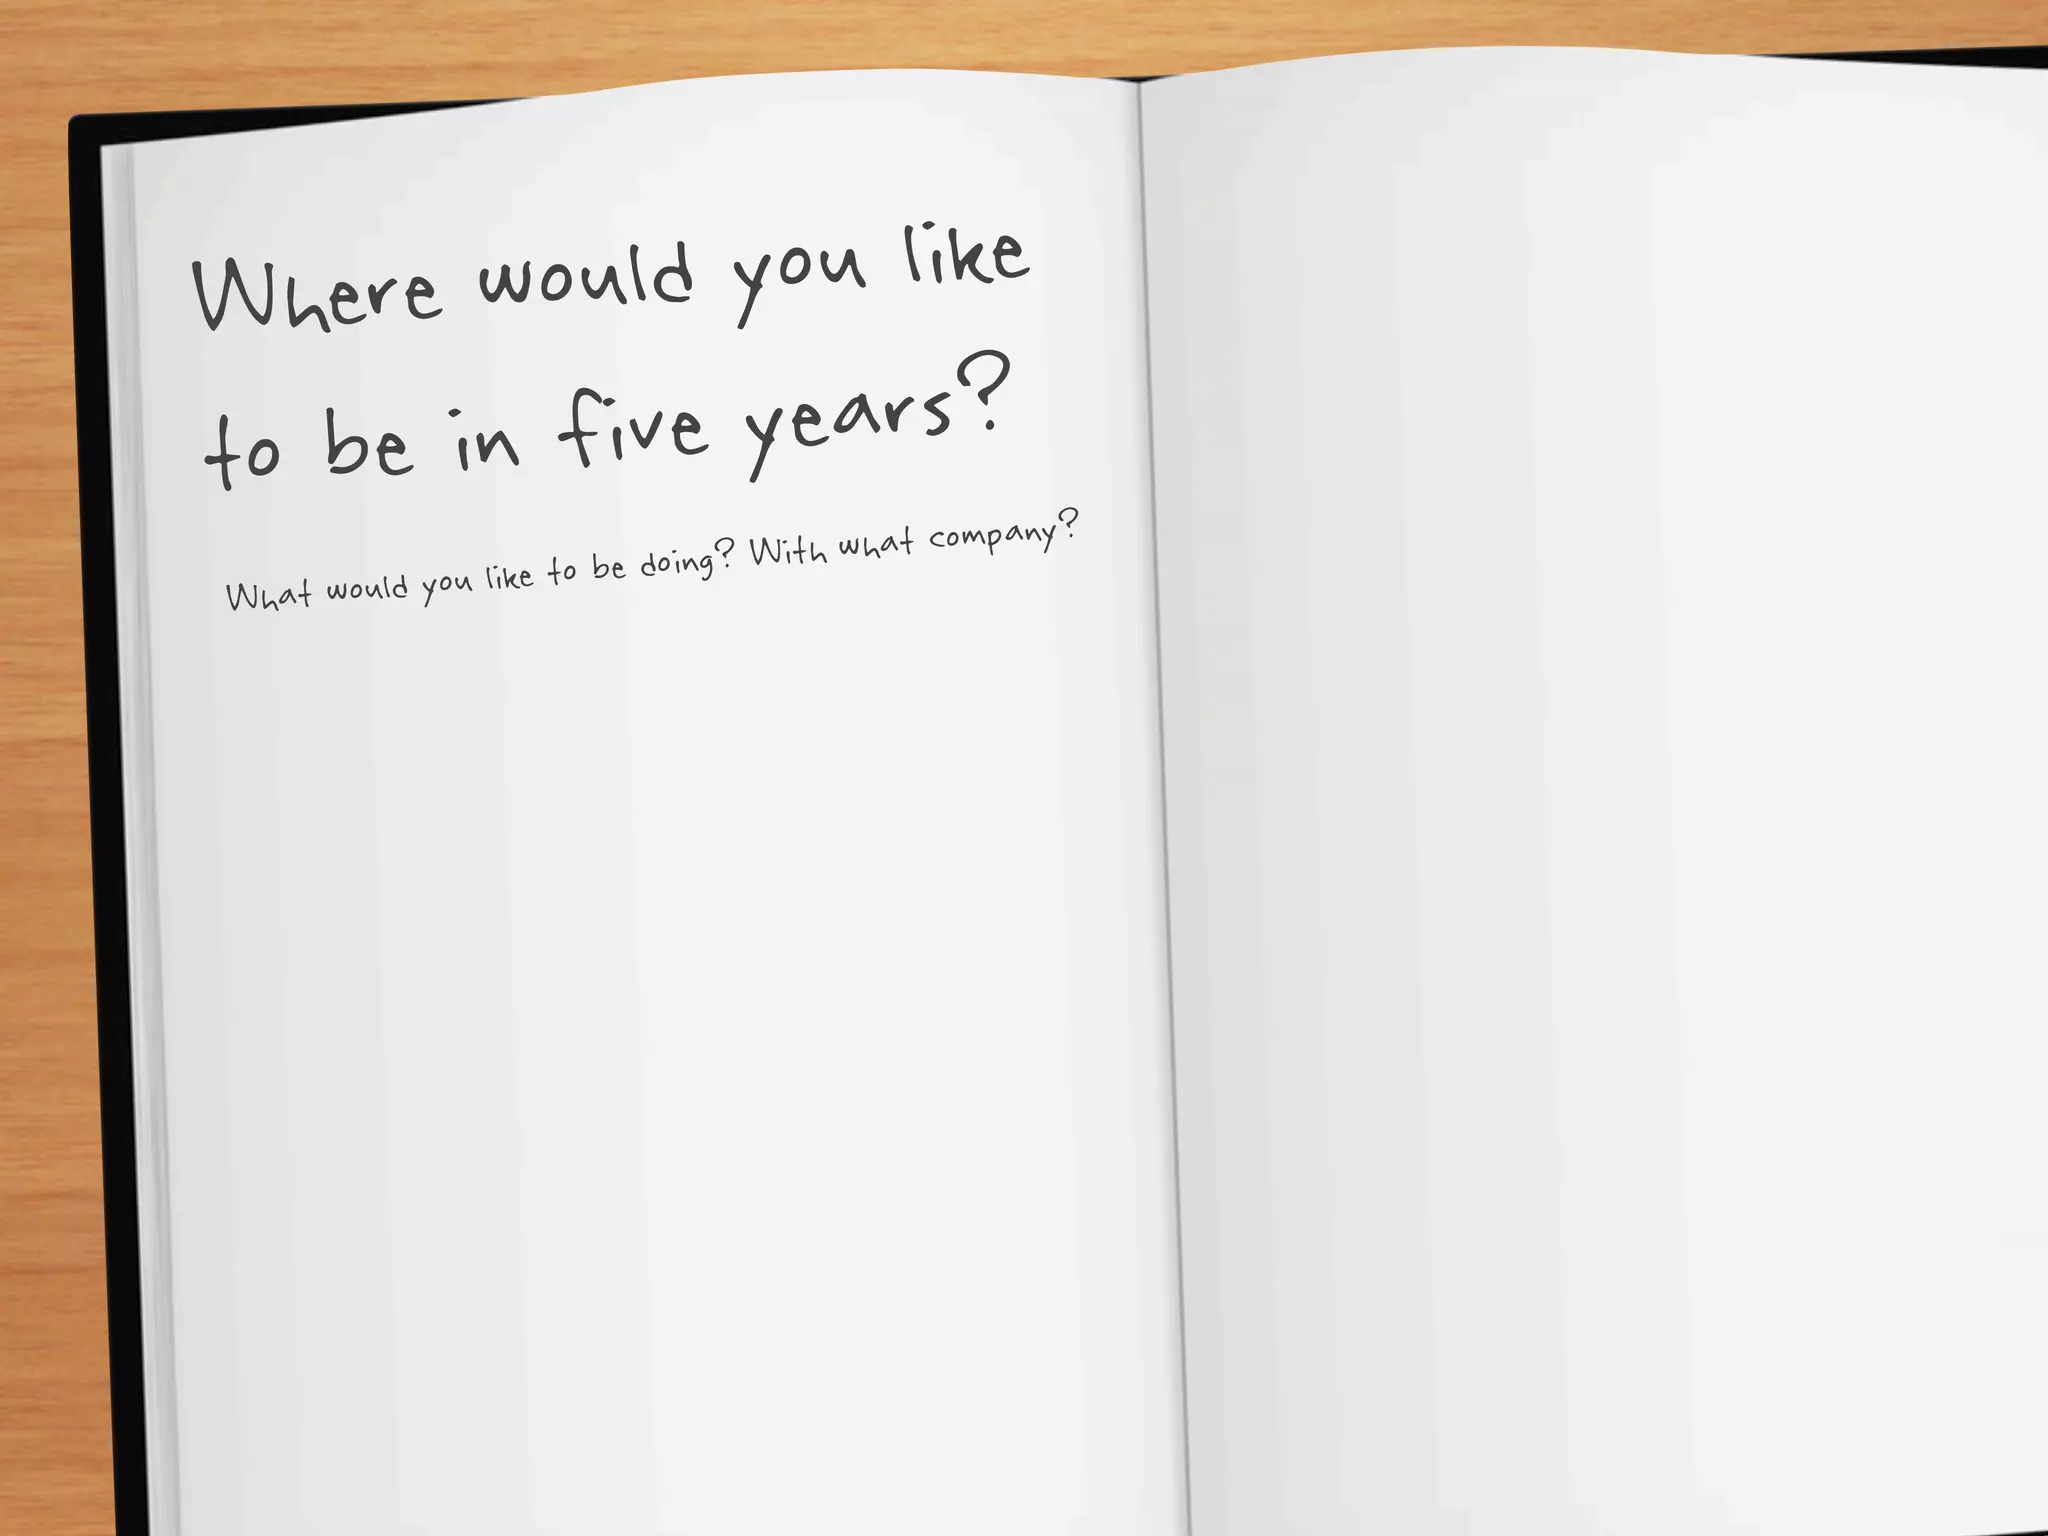 Where would you like
to be in five years?
What would you like to be doing? With what company?